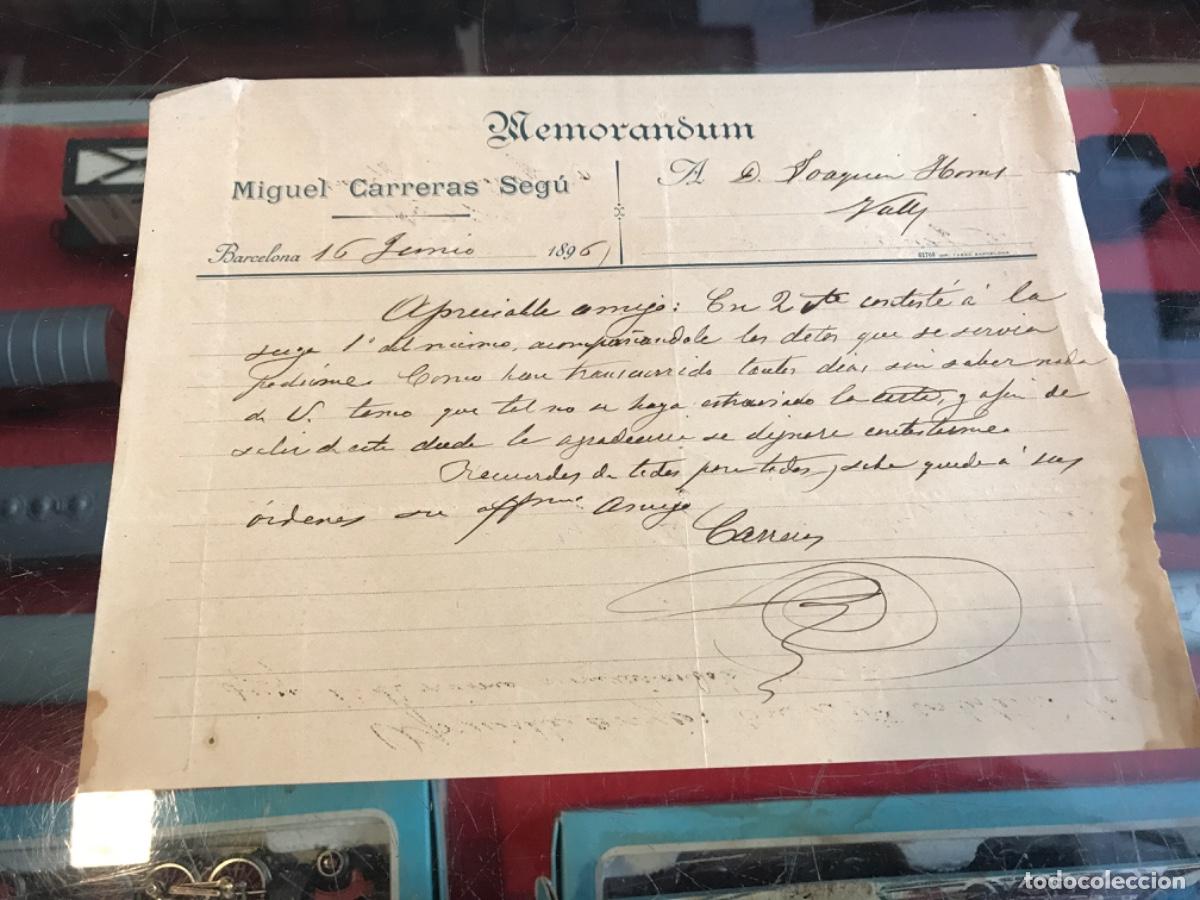 Memorandum
Miguel Carreras Segú
A D. Joaquin
Valls
Barcelona 16 Junio 1896
Apreciable amigo: En 2 cte contesté á la
suya 1º del mismo, acompañandole los datos que se servia
pedirme. Como han transcurrido tantos dias, sin saber nada
de V. temo que tal no se haya estraviado la carta, y afin de
salir de este duda le agradeceré se dignare contestarme.
Recuerdos de todos para todos, y sabe quede á sus
órdenes su affmo. amigo
Carreras
todocoleccion